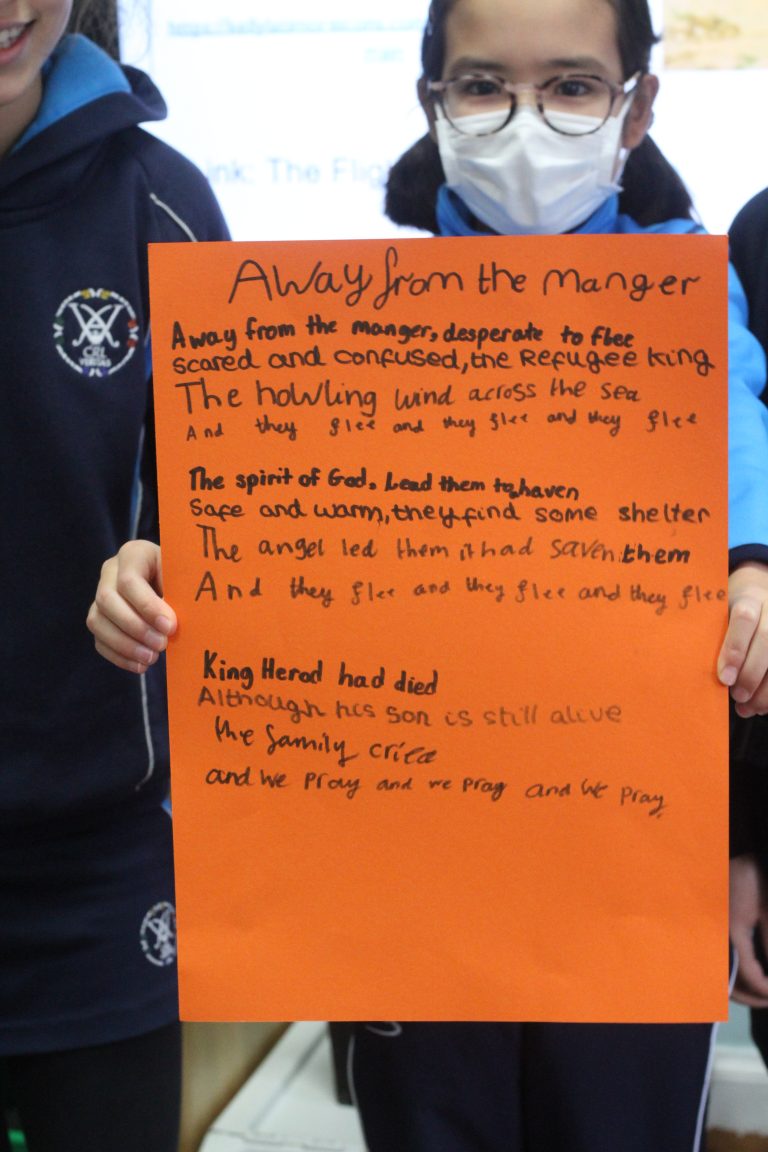 ink: The Flig
CRL
VERITAS
Away from the manger
Away from the manger, desperate to flee
Scared and confused, the Refugee King
The howling wind across the sea
And they flee and they flee and they flee
The spirit of God. Lead them to haven
Safe and warm, they find some shelter
The angel led them it had saven them
And they flee and they flee and they flee
King Herod had died
Although his son is still alive
the family cried
and we pray and we pray and we pray